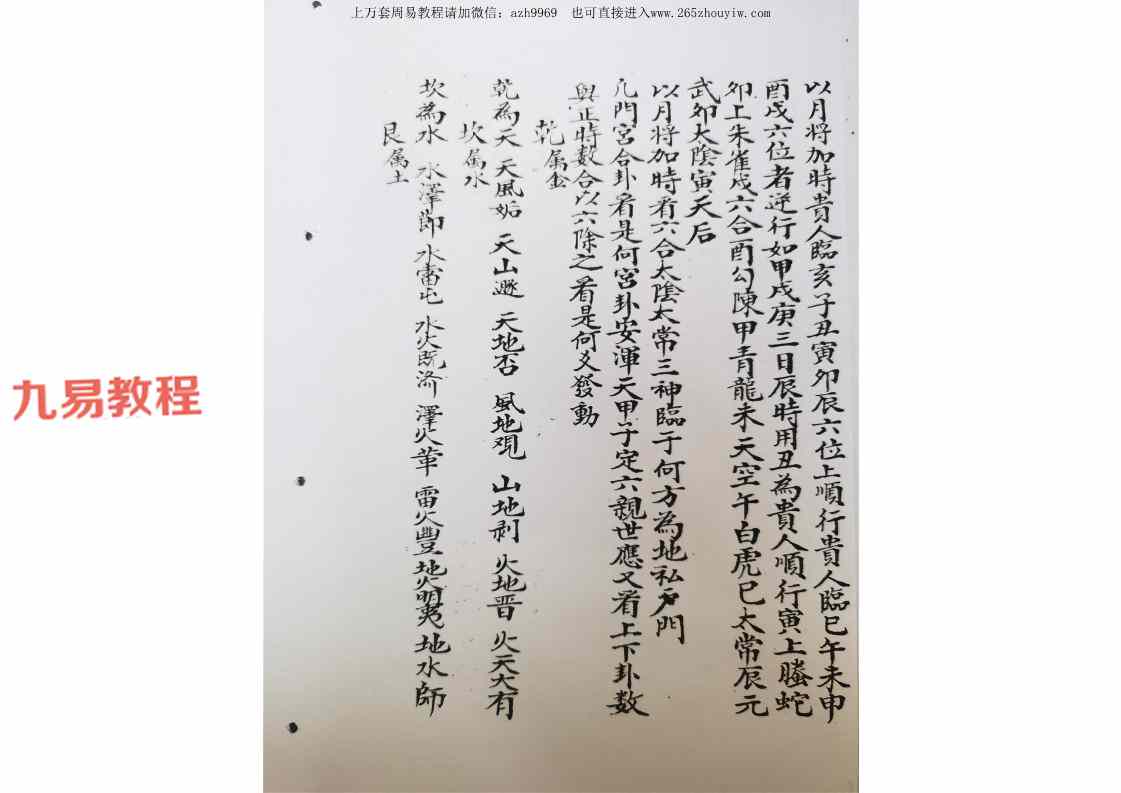 上万套周易教程请加微信：azh9969　也可直接进入www.265zhouyiw.com
以月将加時貴人臨亥子丑寅卯辰六位上順行貴人臨巳午未申
酉戌六位者逆行如甲戌庚三日辰時用丑為貴人順行寅上螣蛇
卯上朱雀戌六合酉勾陳甲青龍未天空午白虎巳太常辰元
武卯太陰寅天后
以月将加時看六合太陰太常三神臨于何方為地私户門
几門宮合卦看是何宮卦安渾天甲子定六親世應又看上下卦数
與正時数合以六除之看是何爻發動
乾属金
乾為天 天風姤 天山遯 天地否 風地覌 山地剥 火地晋 火天大有
坎属水
坎為水 水澤節 水雷屯 水火既济 澤火革 雷火豐 地火明夷 地水師
艮属土
九易教程